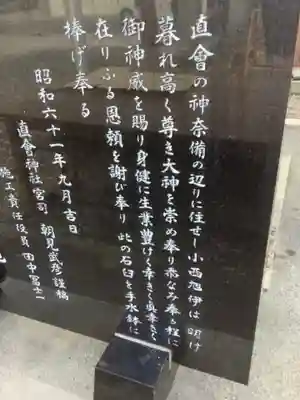 直會の神奈備の辺りに住せし小西旭伊は 明け
暮れ高く尊き大神を崇め奉り忝なみ奉る程に
御神威を賜り身健に生業豊けく幸きく真幸きく
在りふる恩頼を謝び奉り 此の石臼を手水鉢に
捧げ奉る
昭和六十一年九月吉日
直會神社宮司 朝見武彦謹稿
施工責任役員 田中冨士一